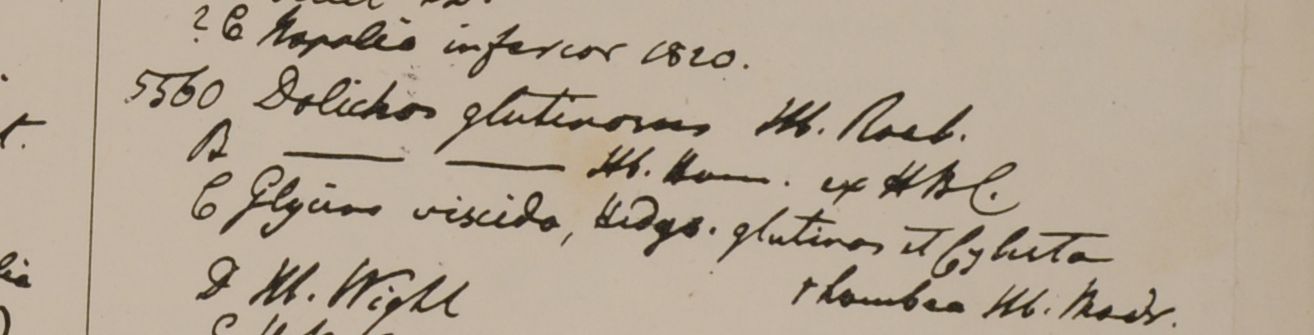 ? C Napalia inferior 1820.
5560 Dolichos glutinosus Hb. Roxb.
B — — Hb. Ham. ex HBC.
C Glycine viscida, Hedys. glutinos et Cylista
rhombea Hb. Madr.
D Hb. Wight